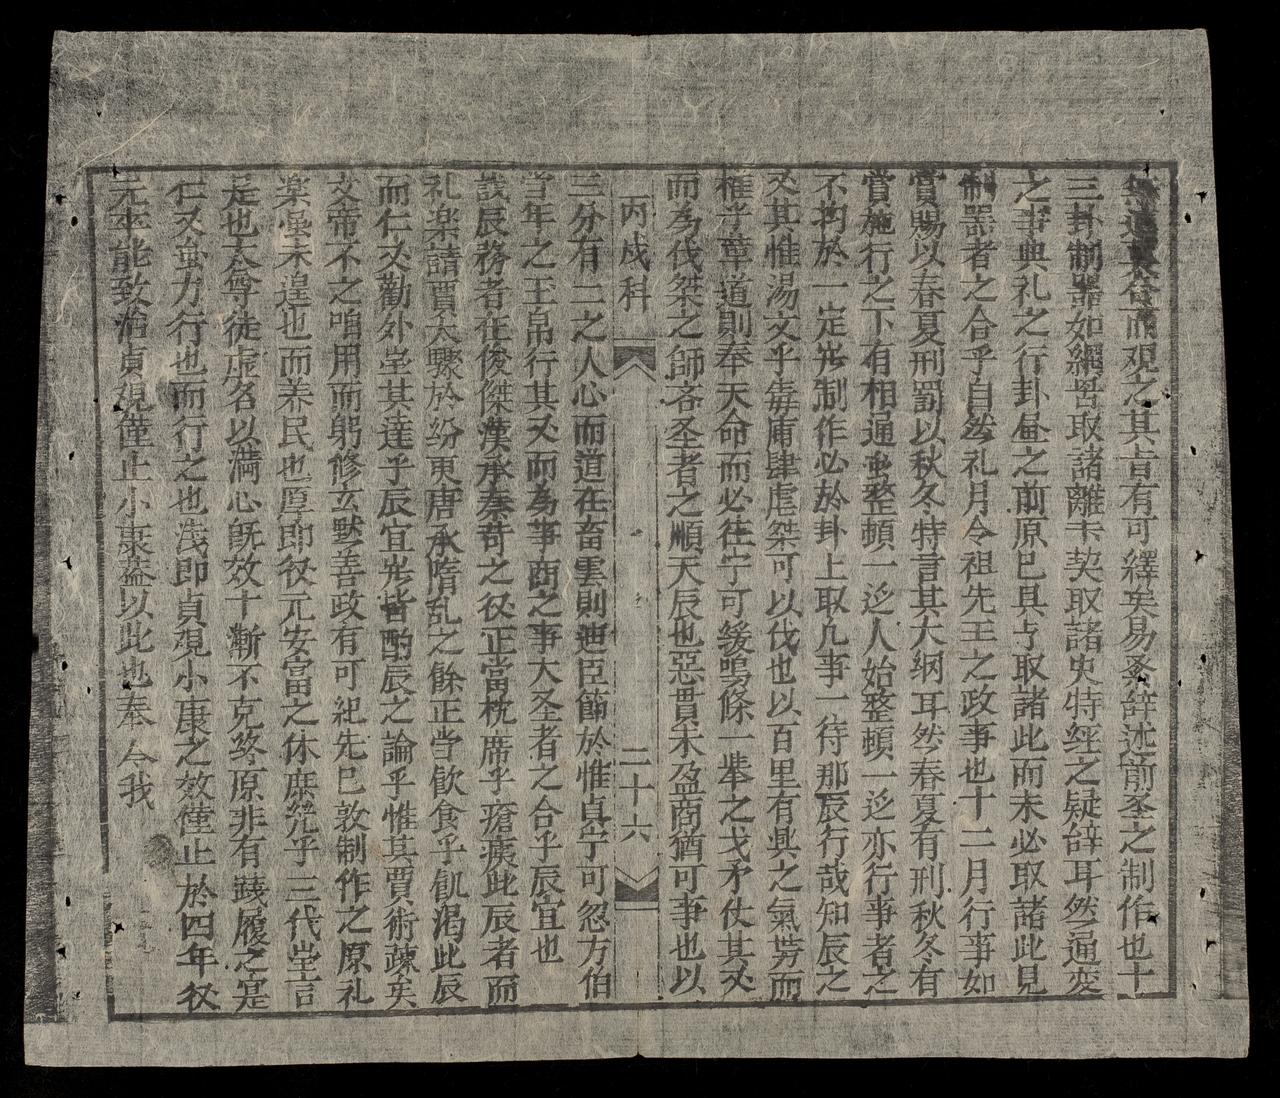 而观之其旨有可繹矣易系辞述前圣之制作也十
三卦制器如網罟取諸離卡契取諸史特經之疑辞耳然通变
之事典礼之行卦昼之前原已具与取諸此而未必取諸此見
制器者之合乎自然礼月令祖先王之政事也十二月行事如
賞賜以春夏刑罰以秋冬特言其大纲耳然春夏有刑秋冬有
賞施行之下有相通重整頓一边人始整頓一边亦行事者之
不拘於一定光制作必於卦上取几事一待那辰行哉知辰之
义其惟湯文乎毒庸肆虐桀可以伐也以百里有具之氣势而
惟乎章道則奉天命而必往宁可缓鳴條一举之戈矛仗其义
而為伐桀之師吝圣者之順天辰也惡貫未盈商猶可事也以
丙戌科
二十六
三分有二之人心而道在畜雲則迪臣節於惟貞宁可忽方伯
当年之王帛行其义而為事商之事大圣者之合乎辰宜也
識辰務者在俊傑漢承秦苛之役正當枕席乎瘡痍此辰者而
礼楽請賈太驟於纷更唐承隋乱之餘正当飲食乎飢渴此辰
而仁义勸外坐其達乎辰宜光皆酌辰之論乎惟其賈術疎矣
文帝不之咱用而躬修玄默善政有可祀先已敦制作之原礼
楽虽未遑也而养民也厚即役元安富之休庶幾乎三代堂言
是也太尊徒虚名以满心既效十漸不克終原非有践履之寔
仁义虽力行也而行之也浅即貞观小康之效僅止於四年役
元卒能致治貞观僅止小康盖以此也奉今我